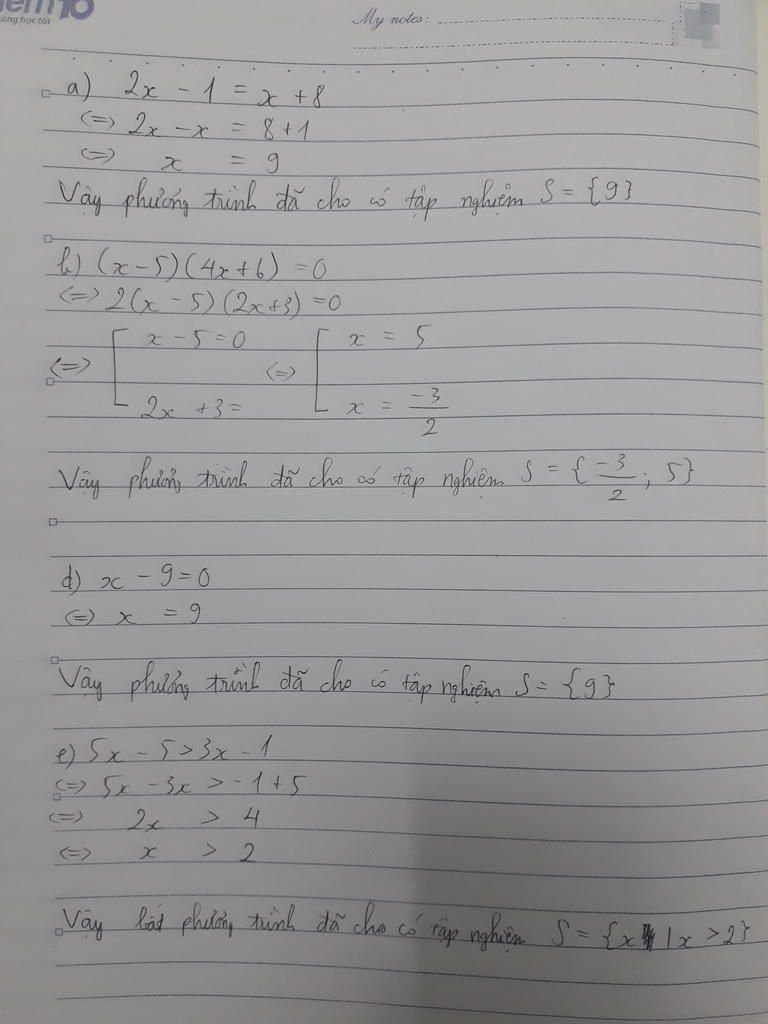 10
My notes:
a) 2x - 1 = x + 8
<=> 2x - x = 8 + 1
<=> x = 9
Vậy phương trình đã cho có tập nghiệm S = {9}
b) (x - 5)(4x + 6) = 0
<=> 2(x - 5)(2x + 3) = 0
<=> [ x - 5 = 0 <=> [ x = 5
2x + 3 = x = -3/2
Vậy phương trình đã cho có tập nghiệm S = {-3/2; 5}
d) x - 9 = 0
<=> x = 9
Vậy phương trình đã cho có tập nghiệm S = {9}
e) 5x - 5 > 3x - 1
<=> 5x - 3x > -1 + 5
<=> 2x > 4
<=> x > 2
Vậy bất phương trình đã cho có tập nghiệm S = {x | x > 2}